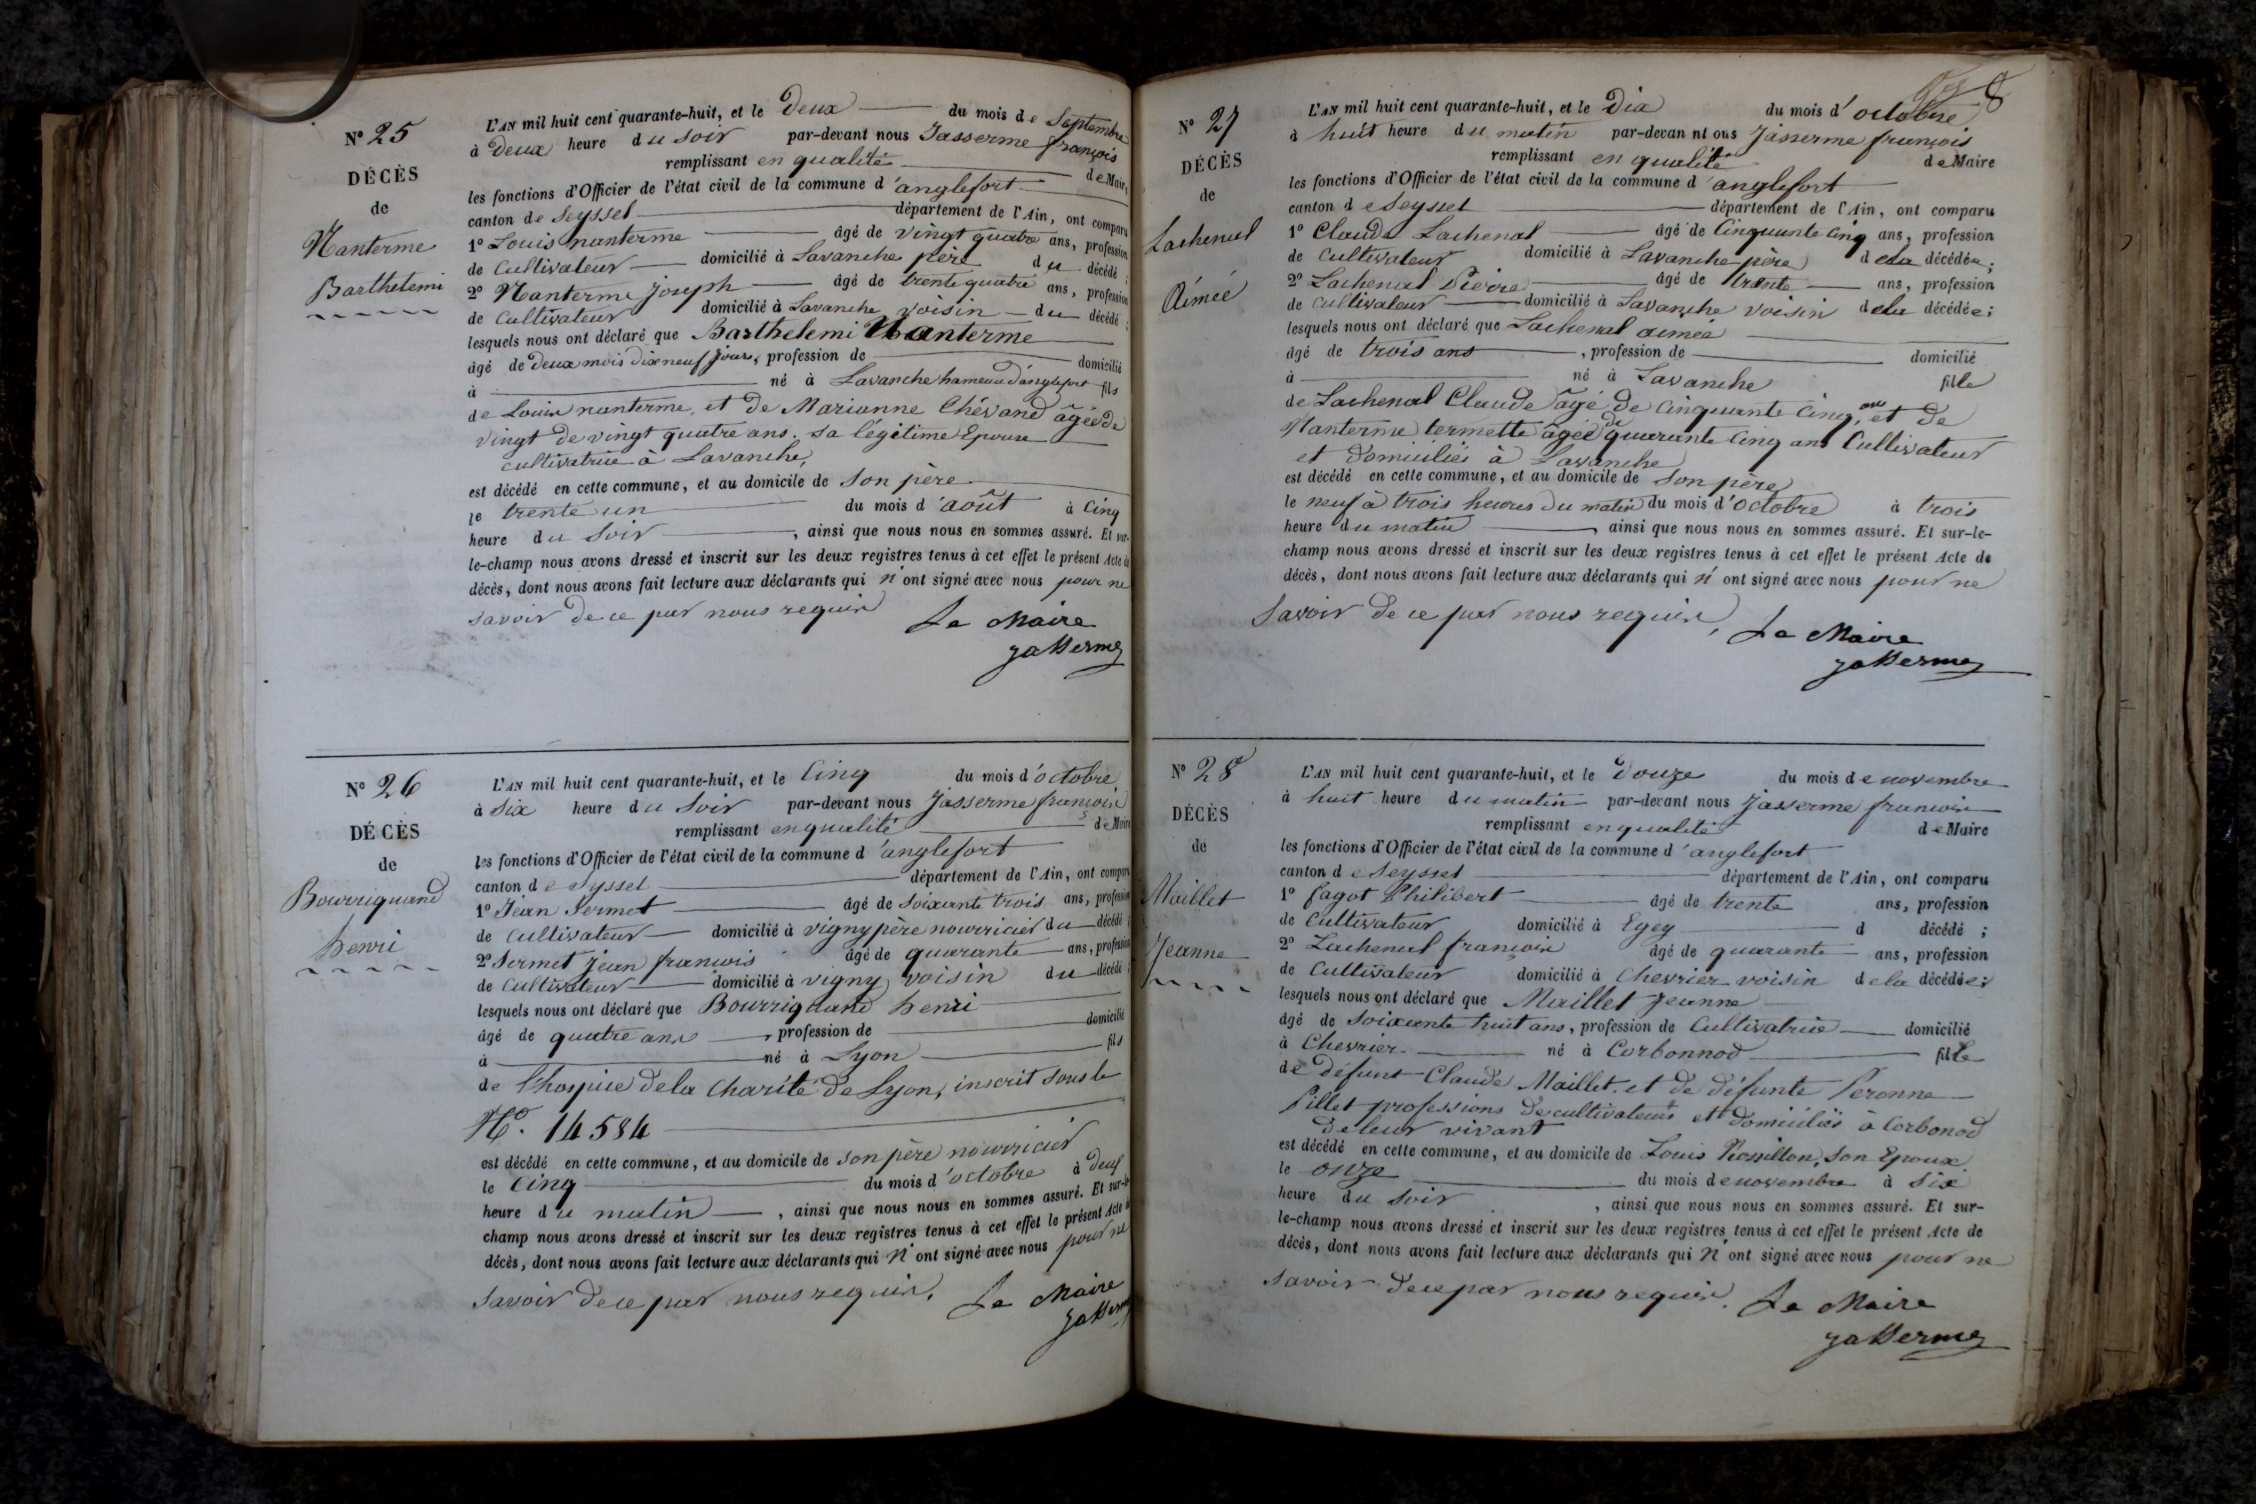 N° 25
DÉCÈS
de
Nanterme
Barthelemi
L'AN mil huit cent quarante-huit, et le Deux du mois de Septembre
à Deux heure du soir par-devant nous Jasserme françois
remplissant en qualité de Maire
les fonctions d'Officier de l'état civil de la commune d'anglefort
canton de Seyssel département de l'Ain, ont comparu
1° Louis nanterme âgé de vingt quatre ans, profession
de Cultivateur domicilié à Lavanche père du décédé ;
2° Nanterme Joseph âgé de trente quatre ans, profession
de Cultivateur domicilié à Lavanche voisin du décédé ;
lesquels nous ont déclaré que Barthelemi Nanterme
âgé de Deux mois dix neuf jours, profession de domicilié
à né à Lavanche hameau d'anglefort fils
de Louis nanterme, et de Marianne Chévand âgée de
vingt de vingt quatre ans. sa légitime Epouse
cultivatrice à Lavanche,
est décédé en cette commune, et au domicile de son père
le trente un du mois d'août à Cinq
heure du Soir, ainsi que nous nous en sommes assuré. Et sur-
le-champ nous avons dressé et inscrit sur les deux registres tenus à cet effet le présent Acte de
décès, dont nous avons fait lecture aux déclarants qui n'ont signé avec nous pour ne
savoir de ce par nous requis
Le Maire
Jasserme
N° 26
DÉCÈS
de
Bourriquand
henri
L'AN mil huit cent quarante-huit, et le Cinq du mois d'octobre
à Six heure du Soir par-devant nous Jasserme françois
remplissant en qualité de Maire
les fonctions d'Officier de l'état civil de la commune d'anglefort
canton de Syssel département de l'Ain, ont comparu
1° Jean Sermet âgé de Soixante trois ans, profession
de Cultivateur domicilié à vigny père nourricier du décédé ;
2° Sermet Jean francois âgé de quarante ans, profession
de Cultivateur domicilié à vigny voisin du décédé ;
lesquels nous ont déclaré que Bourriquand henri
âgé de quatre ans, profession de domicilié
à né à Lyon fils
de l'hospice de la Charité de Lyon, inscrit sous le
N°. 14584
est décédé en cette commune, et au domicile de son père nourricier
le Cinq du mois d'octobre à Deuf
heure du matin, ainsi que nous nous en sommes assuré. Et sur-le-
champ nous avons dressé et inscrit sur les deux registres tenus à cet effet le présent Acte de
décès, dont nous avons fait lecture aux déclarants qui n'ont signé avec nous pour ne
Savoir de ce par nous requis.
Le Maire
Jasserme
8
N° 27
DÉCÈS
de
Lachenal
Aimée
L'AN mil huit cent quarante-huit, et le Dix du mois d'octobre
à huit heure du matin par-devan nt ous Jasserme françois
remplissant en qualité de Maire
les fonctions d'Officier de l'état civil de la commune d'anglefort
canton de Seyssel département de l'Ain, ont comparu
1° Claude Lachenal âgé de Cinquante cinq ans, profession
de Cultivateur domicilié à Lavanche père de la décédée ;
2° Lachenal Pierre âgé de trente ans, profession
de Cultivateur domicilié à Lavanche voisin de la décédée ;
lesquels nous ont déclaré que Lachenal aimée
âgé de trois ans, profession de domicilié
à né à Lavanche fille
de Lachenal Claude âgé de Cinquante Cinq ans et de
Nanterme termette âgée de quarante Cinq ans Cultivateur
et domiciliés à Lavanche
est décédé en cette commune, et au domicile de son père
le neuf à trois heures du matin du mois d'octobre à trois
heure du matin, ainsi que nous nous en sommes assuré. Et sur-le-
champ nous avons dressé et inscrit sur les deux registres tenus à cet effet le présent Acte de
décès, dont nous avons fait lecture aux déclarants qui n'ont signé avec nous pour ne
Savoir de ce par nous requis,
Le Maire
Jasserme
N° 28
DÉCÈS
de
Maillet
Jeanne
L'AN mil huit cent quarante-huit, et le Douze du mois de novembre
à huit heure du matin par-devant nous Jasserme francois
remplissant en qualité de Maire
les fonctions d'Officier de l'état civil de la commune d'anglefort
canton de Seyssel département de l'Ain, ont comparu
1° fagot Philibert âgé de trente ans, profession
de Cultivateur domicilié à Egey d décédé ;
2° Lachenal françois âgé de quarante ans, profession
de Cultivateur domicilié à Chevrier voisin de la décédée ;
lesquels nous ont déclaré que Maillet Jeanne
âgé de soixante huit ans, profession de Cultivatrice domicilié
à Chevrier né à Corbonnod fille
de défunt Claude Maillet et de défunte Péronne
Pillet professions de cultivateurs et domiciliés à Corbonod
de leur vivant
est décédé en cette commune, et au domicile de Louis Rossillon, son Epoux
le onze du mois de novembre à Six
heure du Soir, ainsi que nous nous en sommes assuré. Et sur-
le-champ nous avons dressé et inscrit sur les deux registres tenus à cet effet le présent Acte de
décès, dont nous avons fait lecture aux déclarants qui n'ont signé avec nous pour ne
savoir de ce par nous requis.
Le Maire
Jasserme